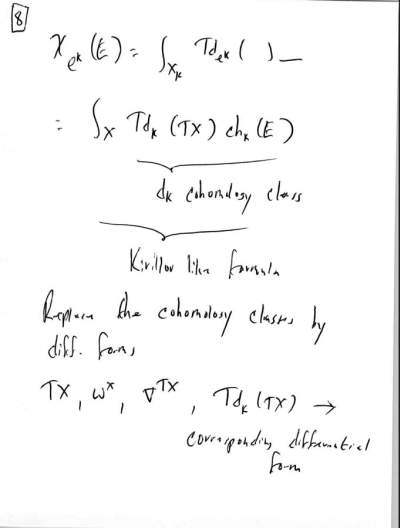 8
χ_{e^k}(E) = ∫_{X_k} Td_{e^k}( ) —
= ∫_X Td_k (TX) ch_k (E)
d_k cohomology class
Kirillov like formula
Replace the cohomology classes by
diff. forms
TX, ω^X, ∇^{TX}, Td_k (TX) →
corresponding differential
form